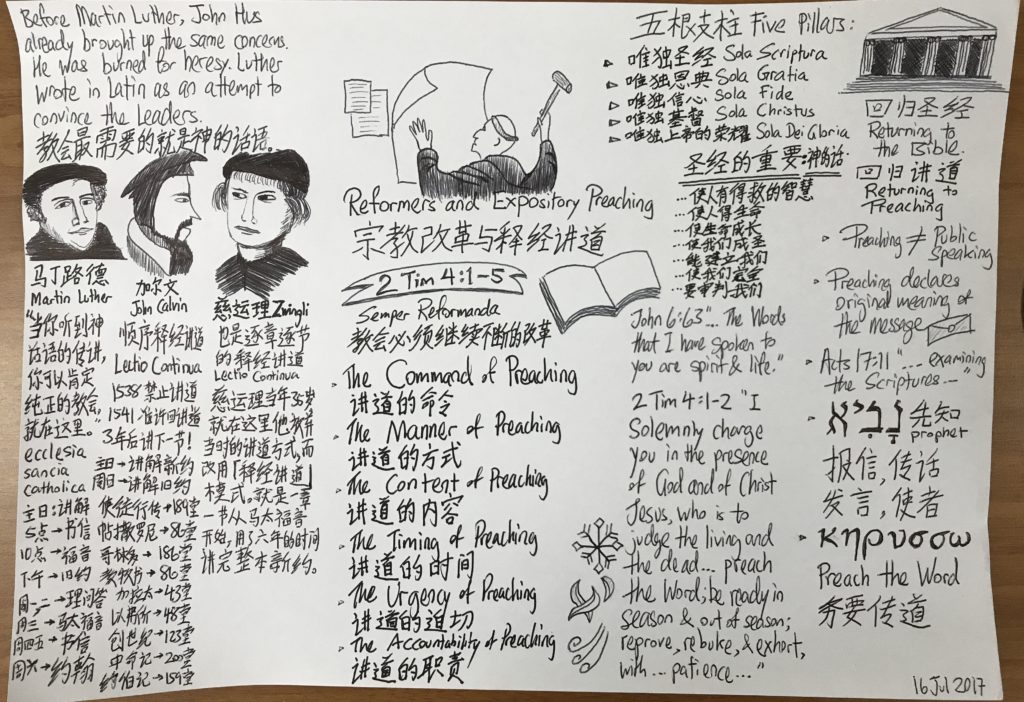 Before Martin Luther, John Hus
already brought up the same concerns.
He was burned for heresy. Luther
wrote in Latin as an attempt to
convince the Leaders.
教会最需要的就是神的话语。
马丁路德
Martin Luther
"当你听到神
话语的传讲,
你可以肯定
纯正的教会,
就在这里。"
ecclesia
sancia
catholica
主日:讲解
5点→书信
10点→福音
下午→旧约
周一,二→理问答
周三→马太福音
周四五→书信
周六→约翰
加尔文
John Calvin
顺序释经讲道
Lectio Continua
1538 禁止讲道
1541 准许回讲道
3年后讲下一节!
主日→讲解新约
周日→讲解旧约
使徒行传→189堂
帖撒罗尼→86堂
哥林多→186堂
教牧书→86堂
加拉太→43堂
以弗所→48堂
创世纪→123堂
申命记→200堂
约伯记→159堂
慈运理 Zwingli
也是逐章逐节
的释经讲道
Lectio Continua
慈运理当年36岁
就在这里他放弃
当时的讲道方式,而
改用「释经讲道」
模式。就是一章
一节从马太福音
开始,用了六年的时间
讲完整本新约。
Reformers and Expository Preaching
宗教改革与释经讲道
2 Tim 4:1-5
Semper Reformanda
教会必须继续不断的改革
The Command of Preaching
讲道的命令
The Manner of Preaching
讲道的方式
The Content of Preaching
讲道的内容
The Timing of Preaching
讲道的时间
The Urgency of Preaching
讲道的迫切
The Accountability of Preaching
讲道的职责
五根支柱 Five Pillars:
唯独圣经 Sola Scriptura
唯独恩典 Sola Gratia
唯独信心 Sola Fide
唯独基督 Sola Christus
唯独上帝的荣耀 Sola Dei Gloria
圣经的重要:神的话
...使人有得救的智慧
...使人得生命
...使生命成长
...使我们成圣
...能建立我们
...使我们完全
...要审判我们
John 6:63 "... The Words
that I have spoken to
you are spirit & life."
2 Tim 4:1-2 "I
Solemnly charge
you in the presence
of God and of Christ
Jesus, who is to
judge the living and
the dead... preach
the Word; be ready in
season & out of season;
reprove, rebuke, & exhort,
with... patience..."
回归圣经
Returning to
the Bible.
回归讲道
Returning to
Preaching
Preaching ≠ Public
Speaking
Preaching declares
original meaning of
the message
Acts 17:11 "... examining
the Scriptures..."
נָבִיא 先知
prophet
报信,传话
发言,使者
κηρυσσω
Preach the Word
务要传道
16 Jul 2017